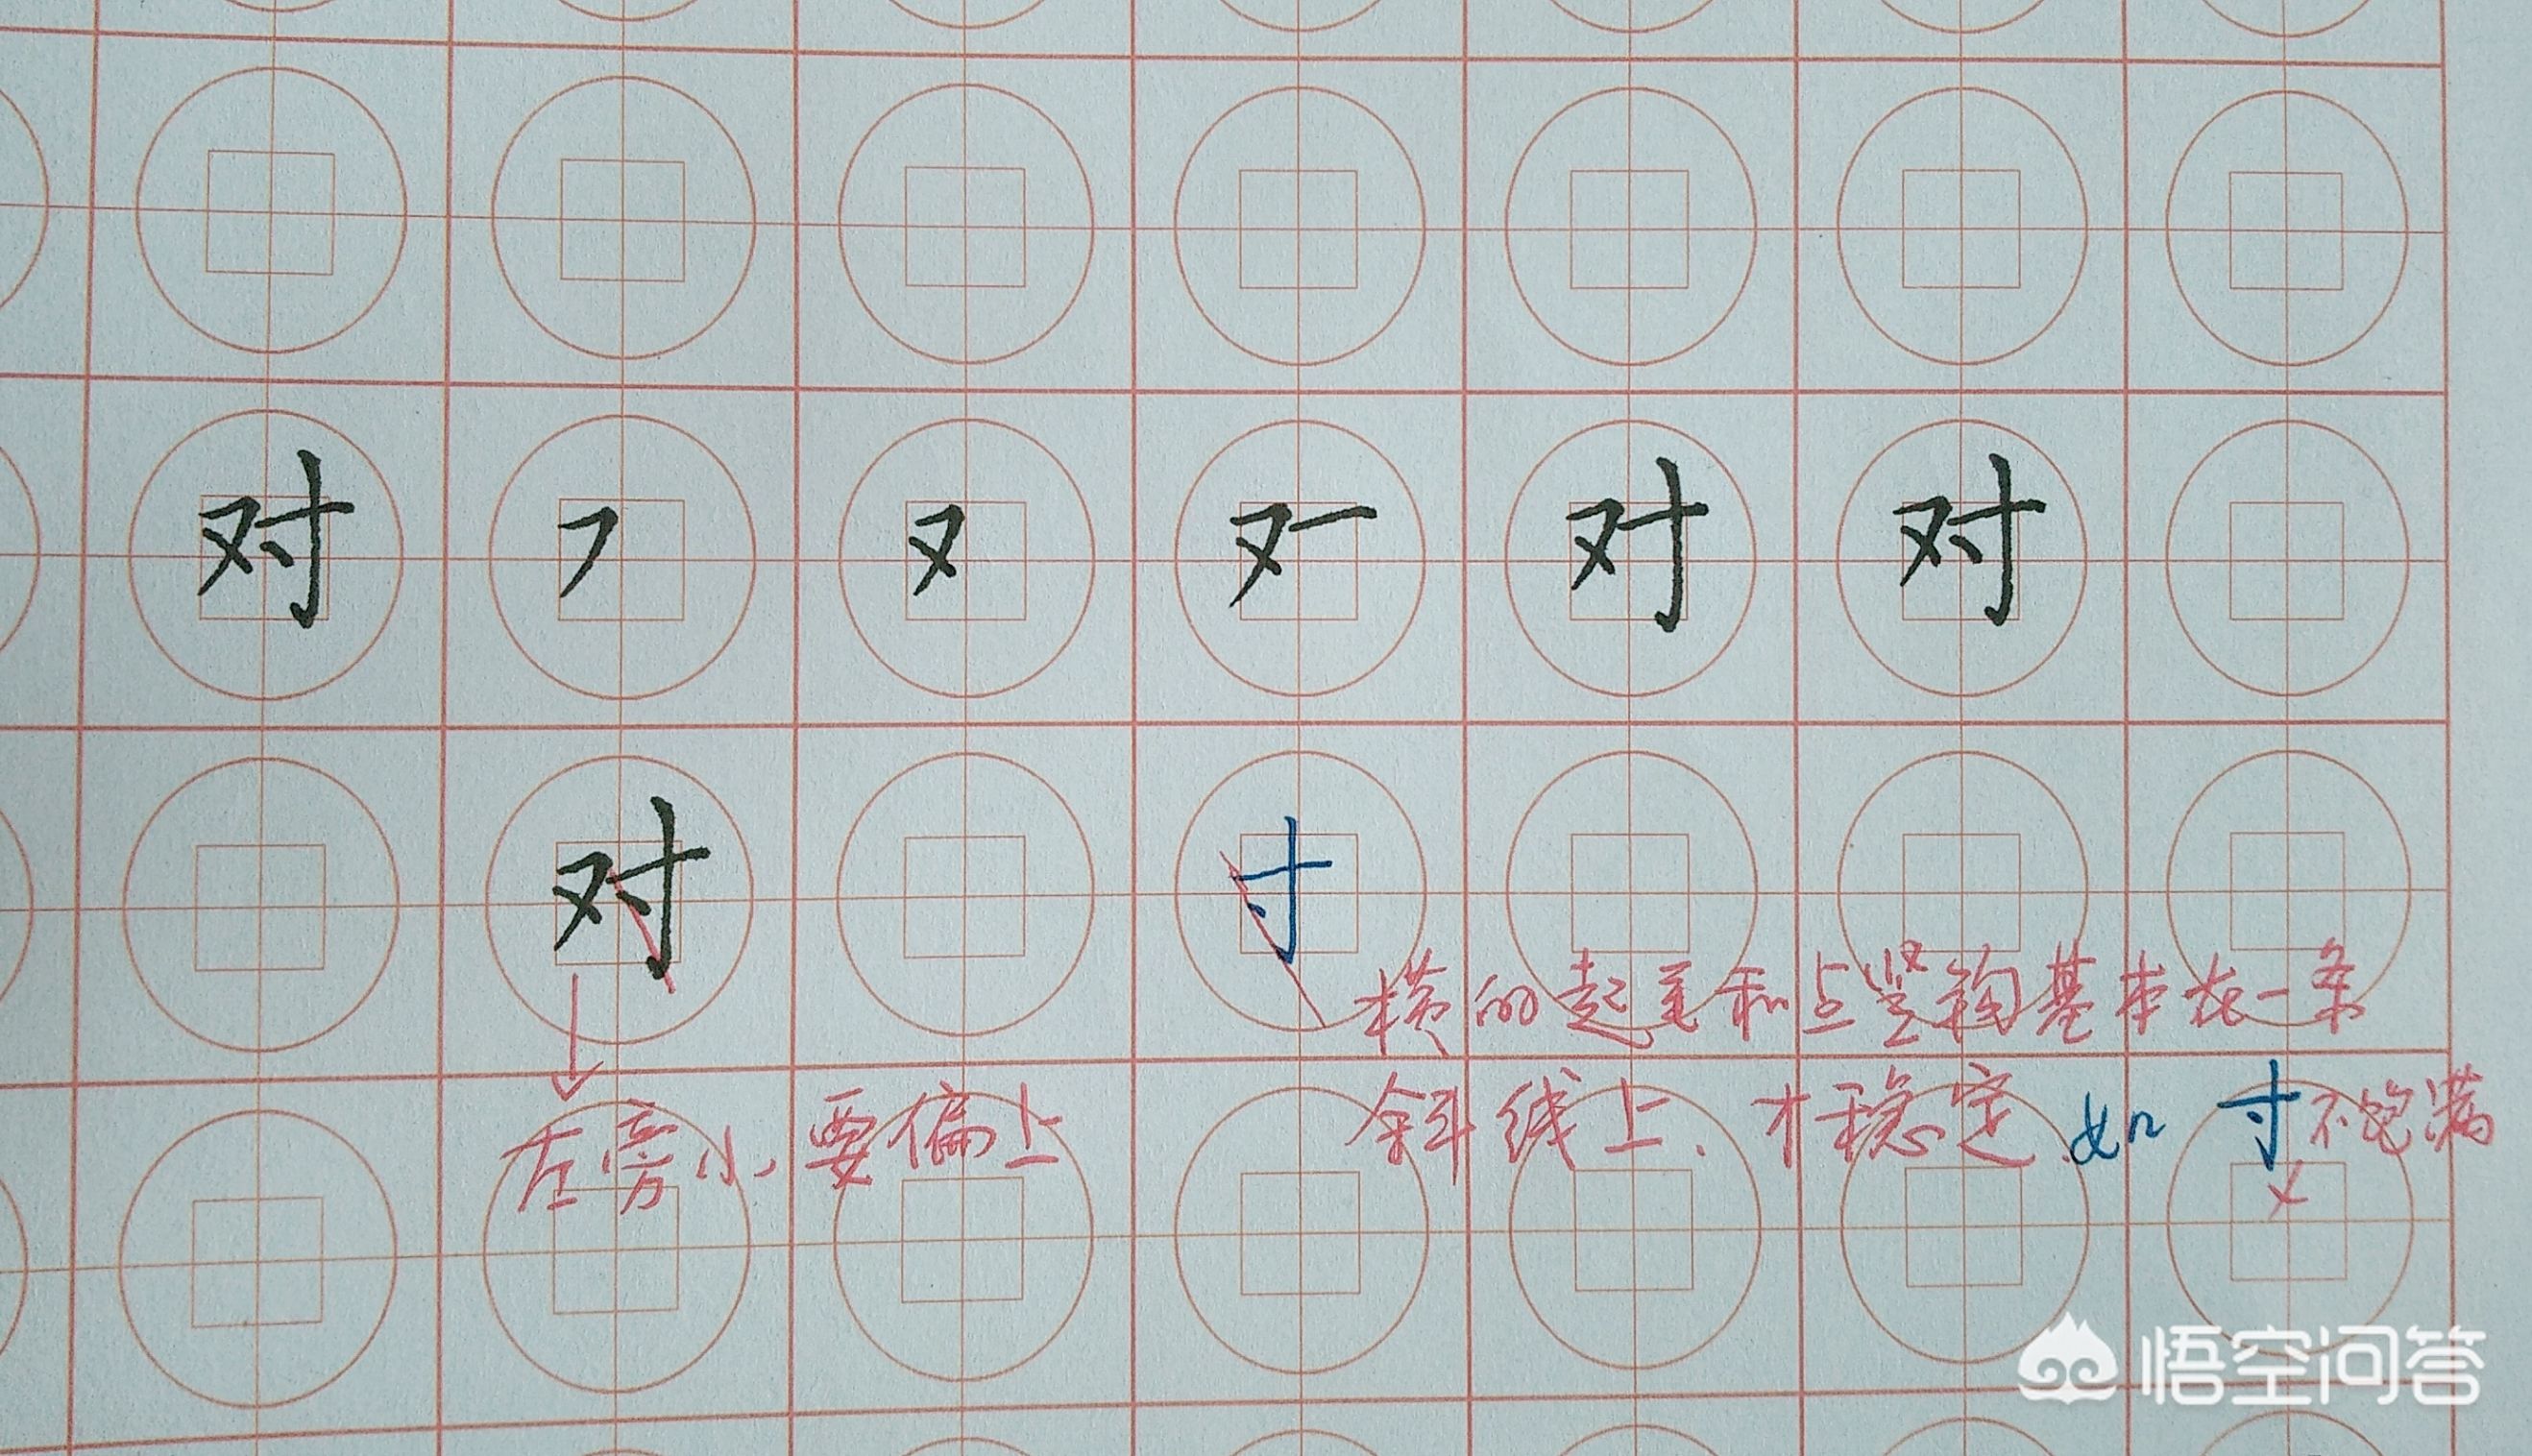 对 フ 又 又一 对 对
对 寸
横的起笔和点竖钩基本在一条
斜线上、才稳定.如 寸不饱满
左旁小要偏上
悟空问答